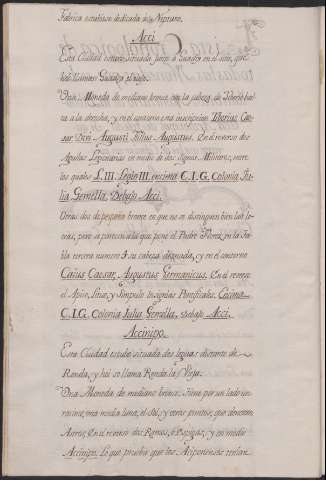 Fabrica estubiese dedicada a Neptuno.
Acci
Esta Ciudad estuvo situada junto a Guadix en el sitio, que
hoi llaman Guadix el viejo.
Una Moneda de mediano bronce con la cabeza de Tiberio bal
a la derecha, y en el contorno esta inscripcion Tiberius Caesar
Divi Augusti Filius Augustus. En el reverso dos
Aguilas Legionarias en medio de dos Signos Militares, entre
los quales L. III. Legio III. encima C.I.G. Colonia Ju-
lia Gemella. Debajo Acci.
Otras dos de pequeño bronce en que no se distinguen bien las le-
tras, pero se parecen a la que pone el Padre Florez en la Ta-
bla tercera numero 4 su cabeza desnuda, y en el contorno
Caius Caesar Augustus Germanicus. En el reverso
el Apice, Lituo, y Simpulo Insignias Pontificales. Encima
C.I.G. Colonia Julia Gemella, Debajo Acci.
Accinipo.
Esta Ciudad estubo situada dos leguas distante de
Ronda, y hoi se llama Ronda la Vieja.
Una Moneda de mediano bronce. Tiene por un lado un
racimo, una media luna, el Sol, y otros puntos, que denotan
Astros; En el reverso dos Ramos, o Espigas, y en medio
Accinipo. Lo que prueba que los Acciponenses tenian